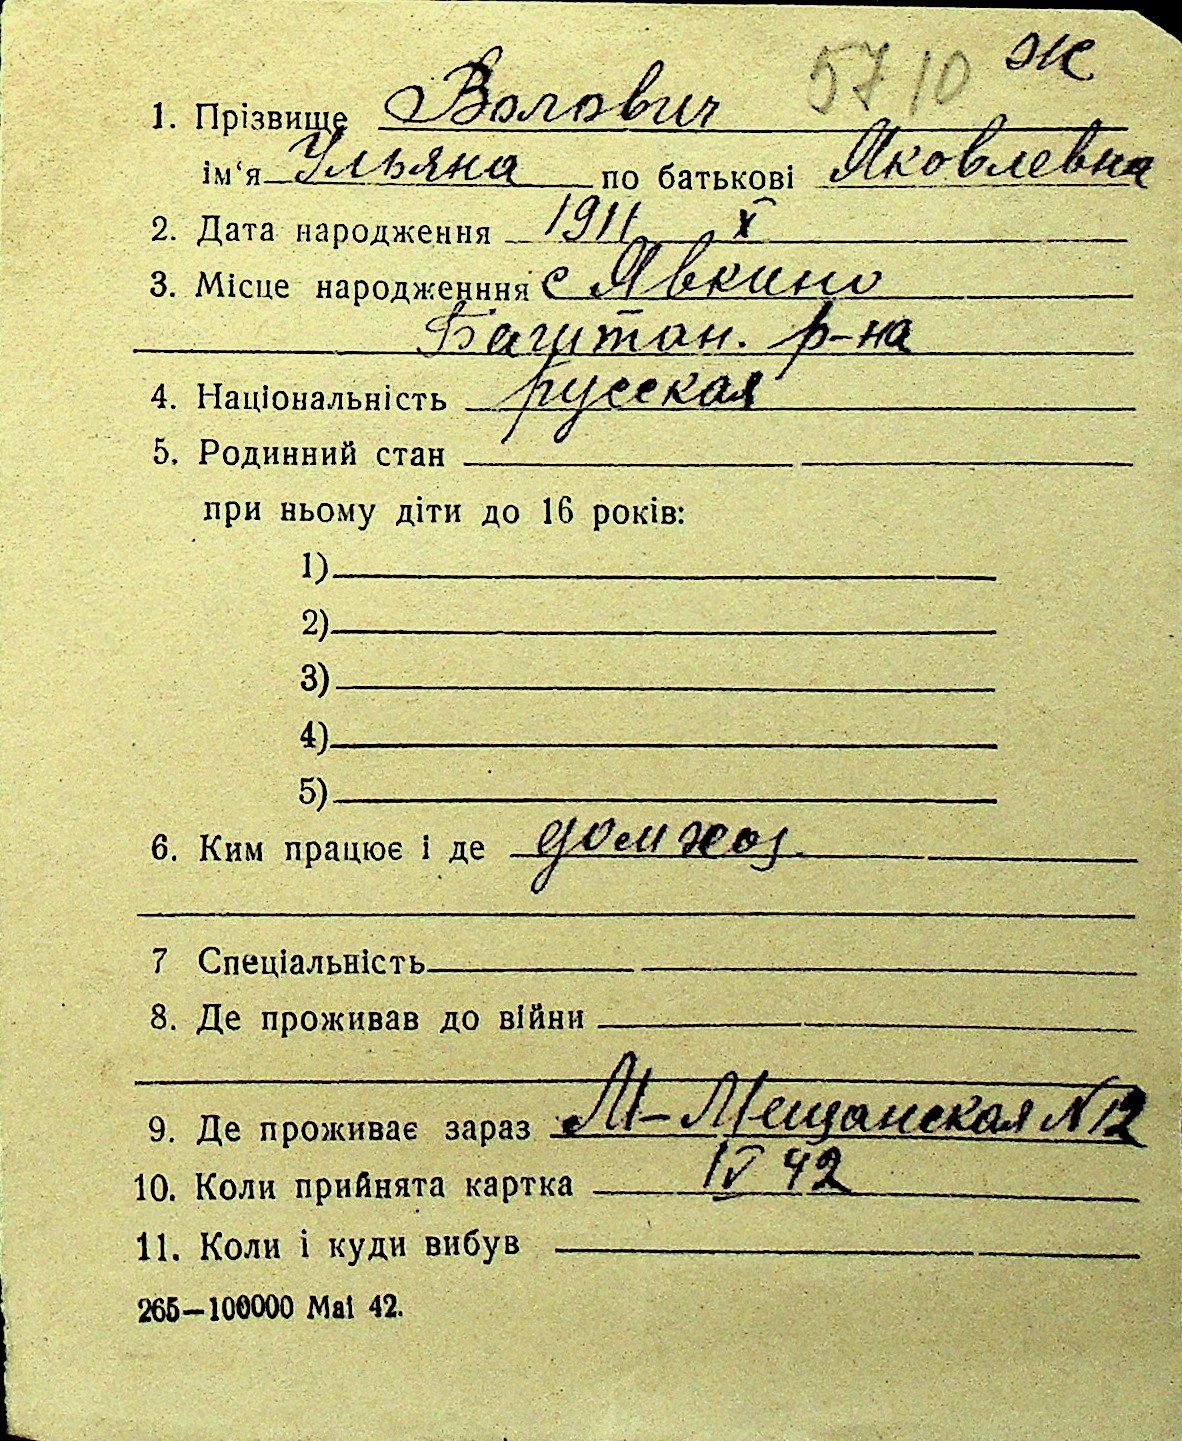 5710 Ж
1. Прізвище Волович
ім'я Ульяна по батькові Яковлевна
2. Дата народження 1911 X
3. Місце народженння с Явкино
Баштан. р-на
4. Національність русская
5. Родинний стан
при ньому діти до 16 років:
1)
2)
3)
4)
5)
6. Ким працює і де домхоз.
7 Спеціальність
8. Де проживав до війни
9. Де проживає зараз М-Мещанская N 12
10. Коли прийнята картка IV 42
11. Коли і куди вибув
265—100000 Mai 42.